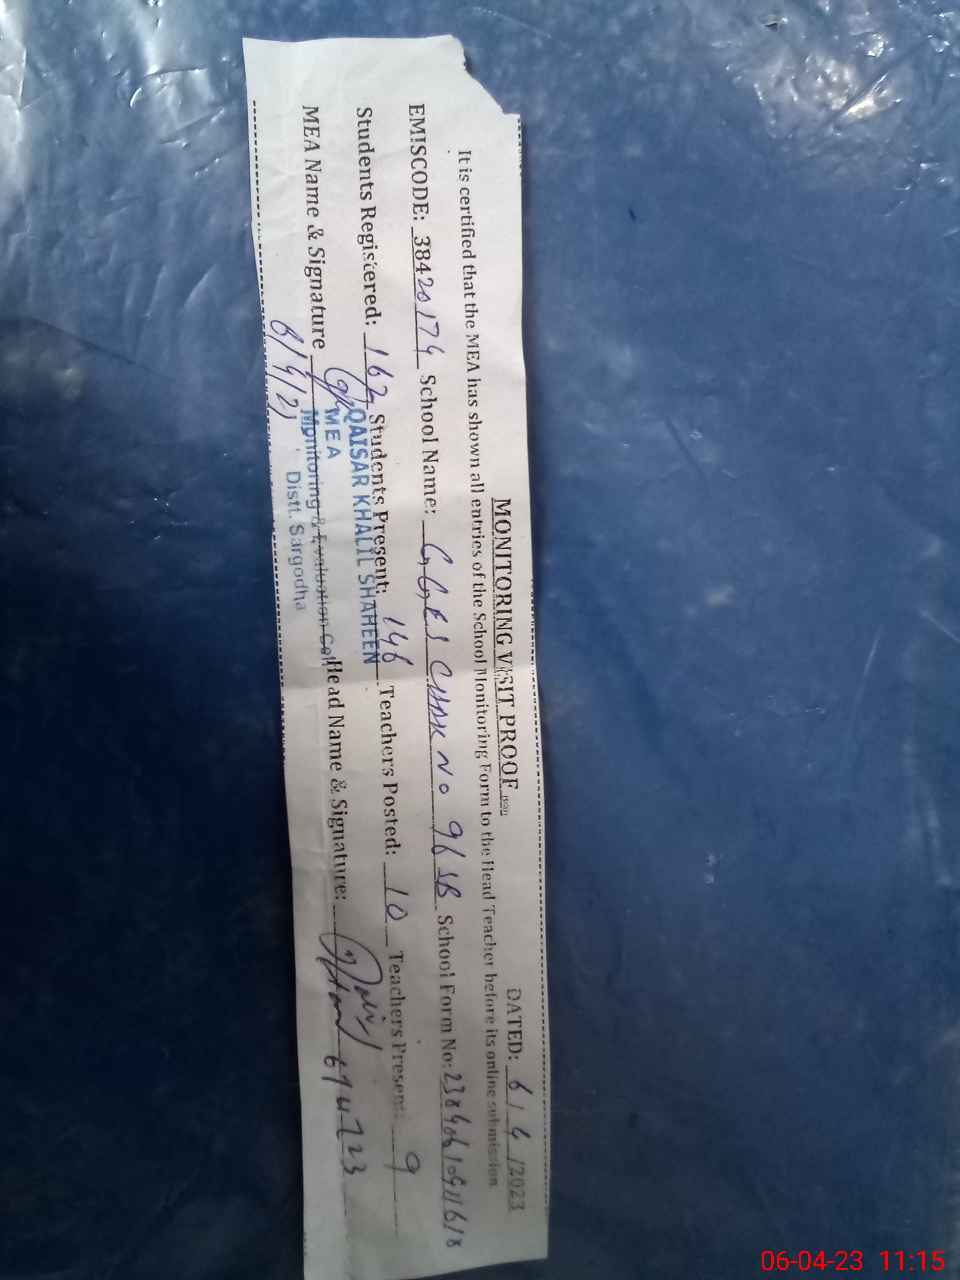 MONITORING VISIT PROOF
DATED: 6/4/2023
It is certified that the MEA has shown all entries of the School Monitoring Form to the Head Teacher before its online submission.
EMISCODE: 38420174 School Name: GGES CHAK NO 96 SB School Form No:
Students Registered: 162 Students Present: 146 Teachers Posted: 10 Teachers Present: 9
QAISAR KHALIL SHAHEEN
MEA
Monitoring & Evaluation Cell
Distt. Sargodha
MEA Name & Signature Head Name & Signature: 6/4/23
06-04-23 11:15